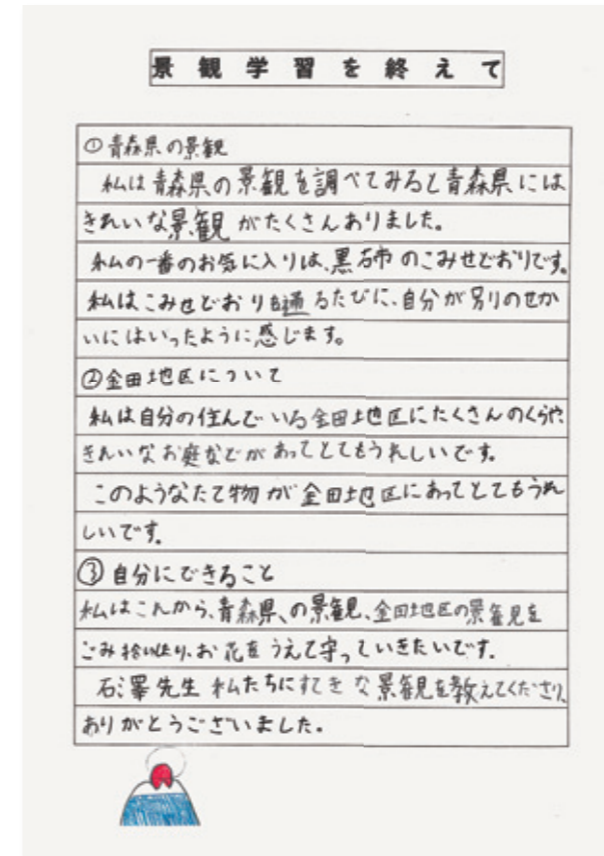 景観学習を終えて
①青森県の景観
私は青森県の景観を調べてみると青森県には
きれいな景観がたくさんありました。
私の一番のお気に入りは、黒石市のこみせどおりです。
私はこみせどおりを通るたびに、自分が別のせか
いにはいったように感じます。
②金田地区について
私は自分の住んでいる金田地区にたくさんのくらや、
きれいなお庭などがあってとてもうれしいです。
このようなたて物が金田地区にあってとてもうれ
しいです。
③自分にできること
私はこれから、青森県、の景観、金田地区の景観を
ごみ拾いしたり、お花をうえて守っていきたいです。
石澤先生 私たちにすてきな景観を教えてくださり、
ありがとうございました。